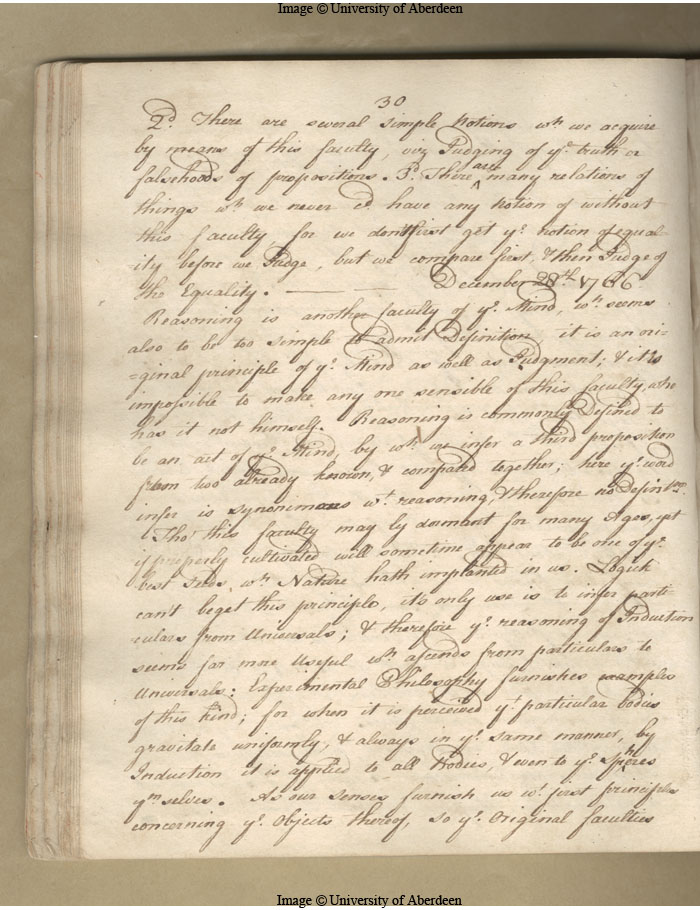 Image © University of Aberdeen
30
2d. There are several simple notions wh. we acquire
by means of this faculty, viz Judging of ye. truth or
falsehoods of propositions. 3d. There are many relations of
things wh. we never cd. have any notion of without
this faculty for we dont first get ye. notion of equal-
-ity before we Judge, but we compare first, & then Judge of
the Equality. — — December 28th. 1766
Reasoning is another faculty of ye. Mind, wh. seems
also to be too simple to admit Definition it is an ori-
=ginal principle of ye. Mind as well as Judgment; & it is
impossible to make any one sensible of this faculty, who
has it not himself. Reasoning is commonly Defined to
be an act of ye. Mind, by wh. we infer a third proposition
from two already known, & compared together; here ye. word
infer is synonimous wt. reasoning, & therefore no Definition
Tho' this faculty may ly dormant for many Ages, yet
if properly cultivated will sometime appear to be one of ye.
best seeds, wh. Nature hath implanted in us. Logick
can't beget this principle, it's only use is to infer parti-
culars from Universals; & therefore ye. reasoning of Induction
seems far more Useful wh. ascends from particulars to
Universals: Experimental Philosophy furnishes examples
of this kind; for when it is perceived yt. particular bodies
gravitate uniformly, & always in ye. same manner, by
Induction it is applied to all Bodies, & even to ye. Spheres
ymselves. As our senses furnish us wt. first principles
concerning ye. Objects thereof, so ye. Original faculties
Image © University of Aberdeen